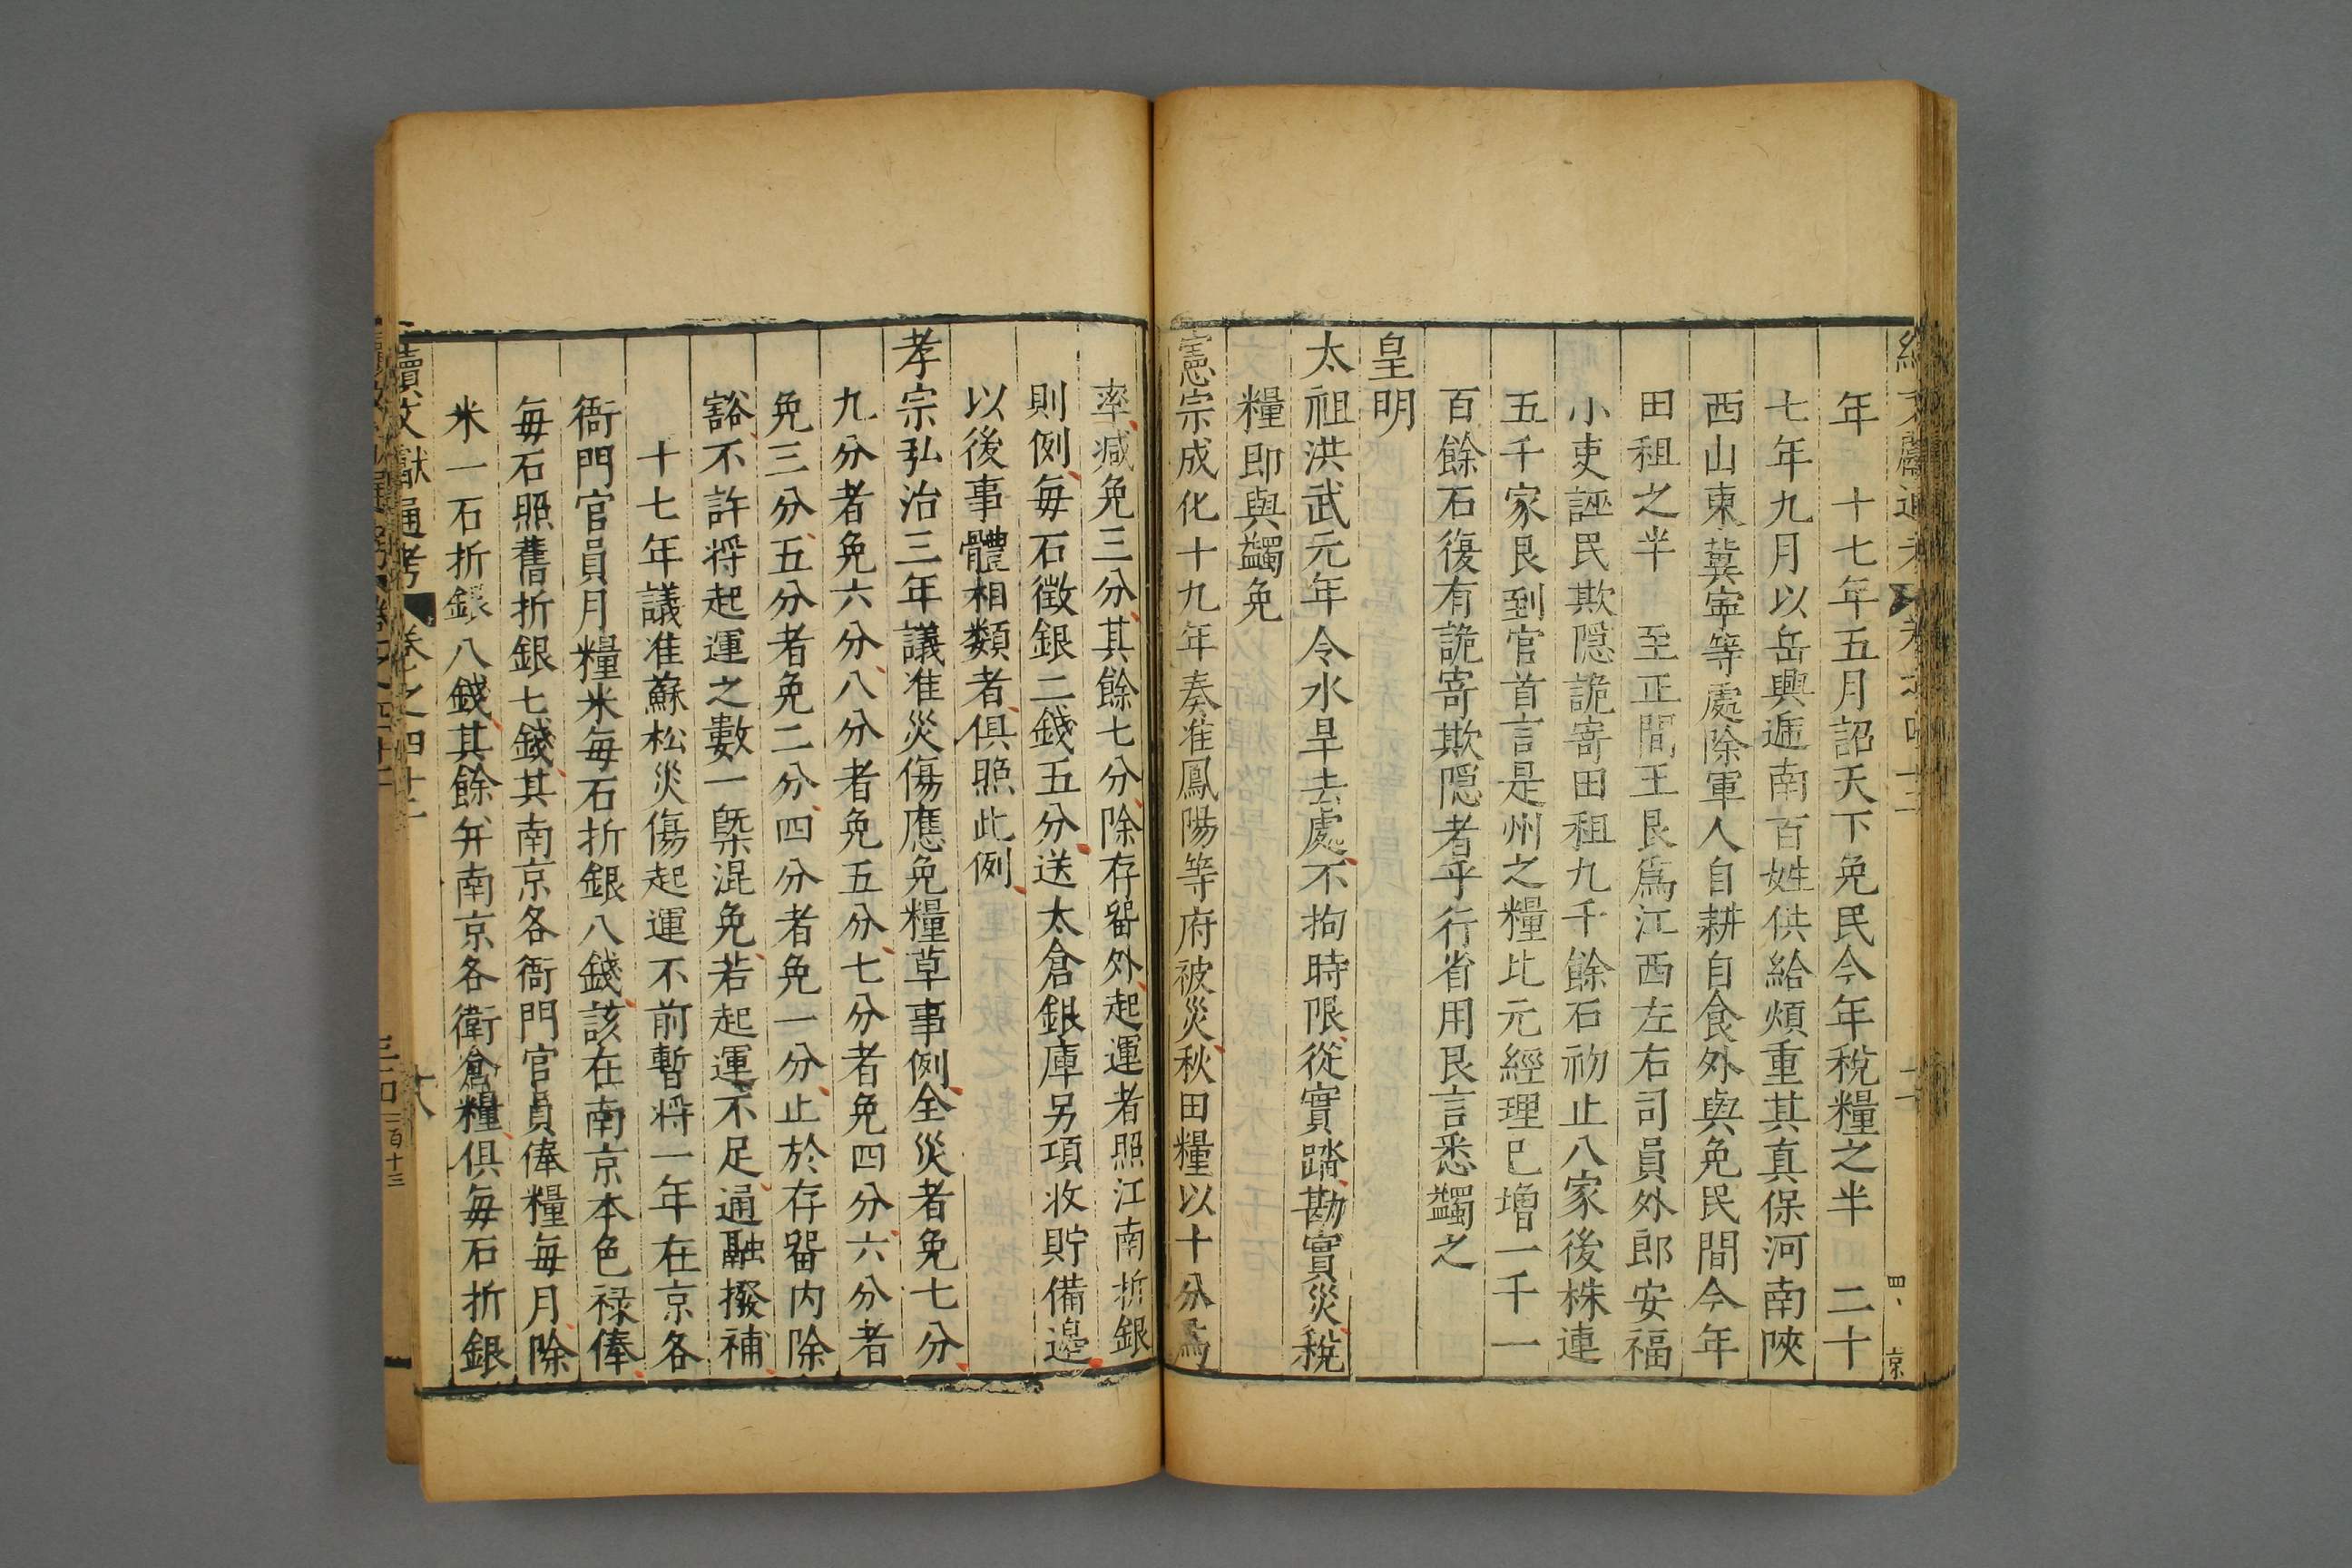 年　十七年五月詔天下免民今年稅糧之半　二十
七年九月以岳興遞南百姓供給煩重其真保河南陝
西山東冀寧等處除軍人自耕自食外與免民間今年
田租之半　至正間王艮爲江西左右司員外郎安福
小吏誣民欺隱詭寄田租九千餘石初止八家後株連
五千家艮到官首言是州之糧比元經理已增一千一
百餘石復有詭寄欺隱者乎行省用艮言悉蠲之
皇明
太祖洪武元年令水旱去處不拘時限從實踏勘實災稅
糧即與蠲免
憲宗成化十九年奏准鳳陽等府被災秋田糧以十分爲
率減免三分其餘七分除存畱外起運者照江南折銀
則例每石徵銀二錢五分送太倉銀庫另項收貯備邊
以後事體相類者俱照此例
孝宗弘治三年議准災傷應免糧草事例全災者免七分
九分者免六分八分者免五分七分者免四分六分者
免三分五分者免二分四分者免一分止於存畱內除
豁不許将起運之數一槩混免若起運不足通融撥補
十七年議准蘇松災傷起運不前暫将一年在京各
衙門官員月糧米每石折銀八錢該在南京本色祿俸
每石照舊折銀七錢其南京各衙門官員俸糧每月除
米一石折銀八錢其餘并南京各衛倉糧俱每石折銀
續文獻通考　卷之四十二